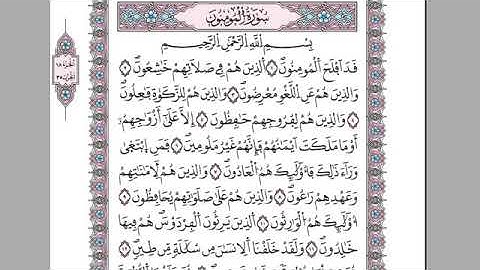 سورة المؤمنون
بسم الله الرحمن الرحيم
قد أفلح المؤمنون ١ الذين هم في صلاتهم خاشعون ٢
والذين هم عن اللغو معرضون ٣ والذين هم للزكوة فاعلون
٤ والذين هم لفروجهم حافظون ٥ إلا على أزواجهم
أو ما ملكت أيمانهم فإنهم غير ملومين ٦ فمن ابتغى
وراء ذلك فأولئك هم العادون ٧ والذين هم لأماناتهم
وعهدهم راعون ٨ والذين هم على صلواتهم يحافظون ٩
أولئك هم الوارثون ١٠ الذين يرثون الفردوس هم فيها
خالدون ١١ ولقد خلقنا الإنسان من سلالة من طين ١٢